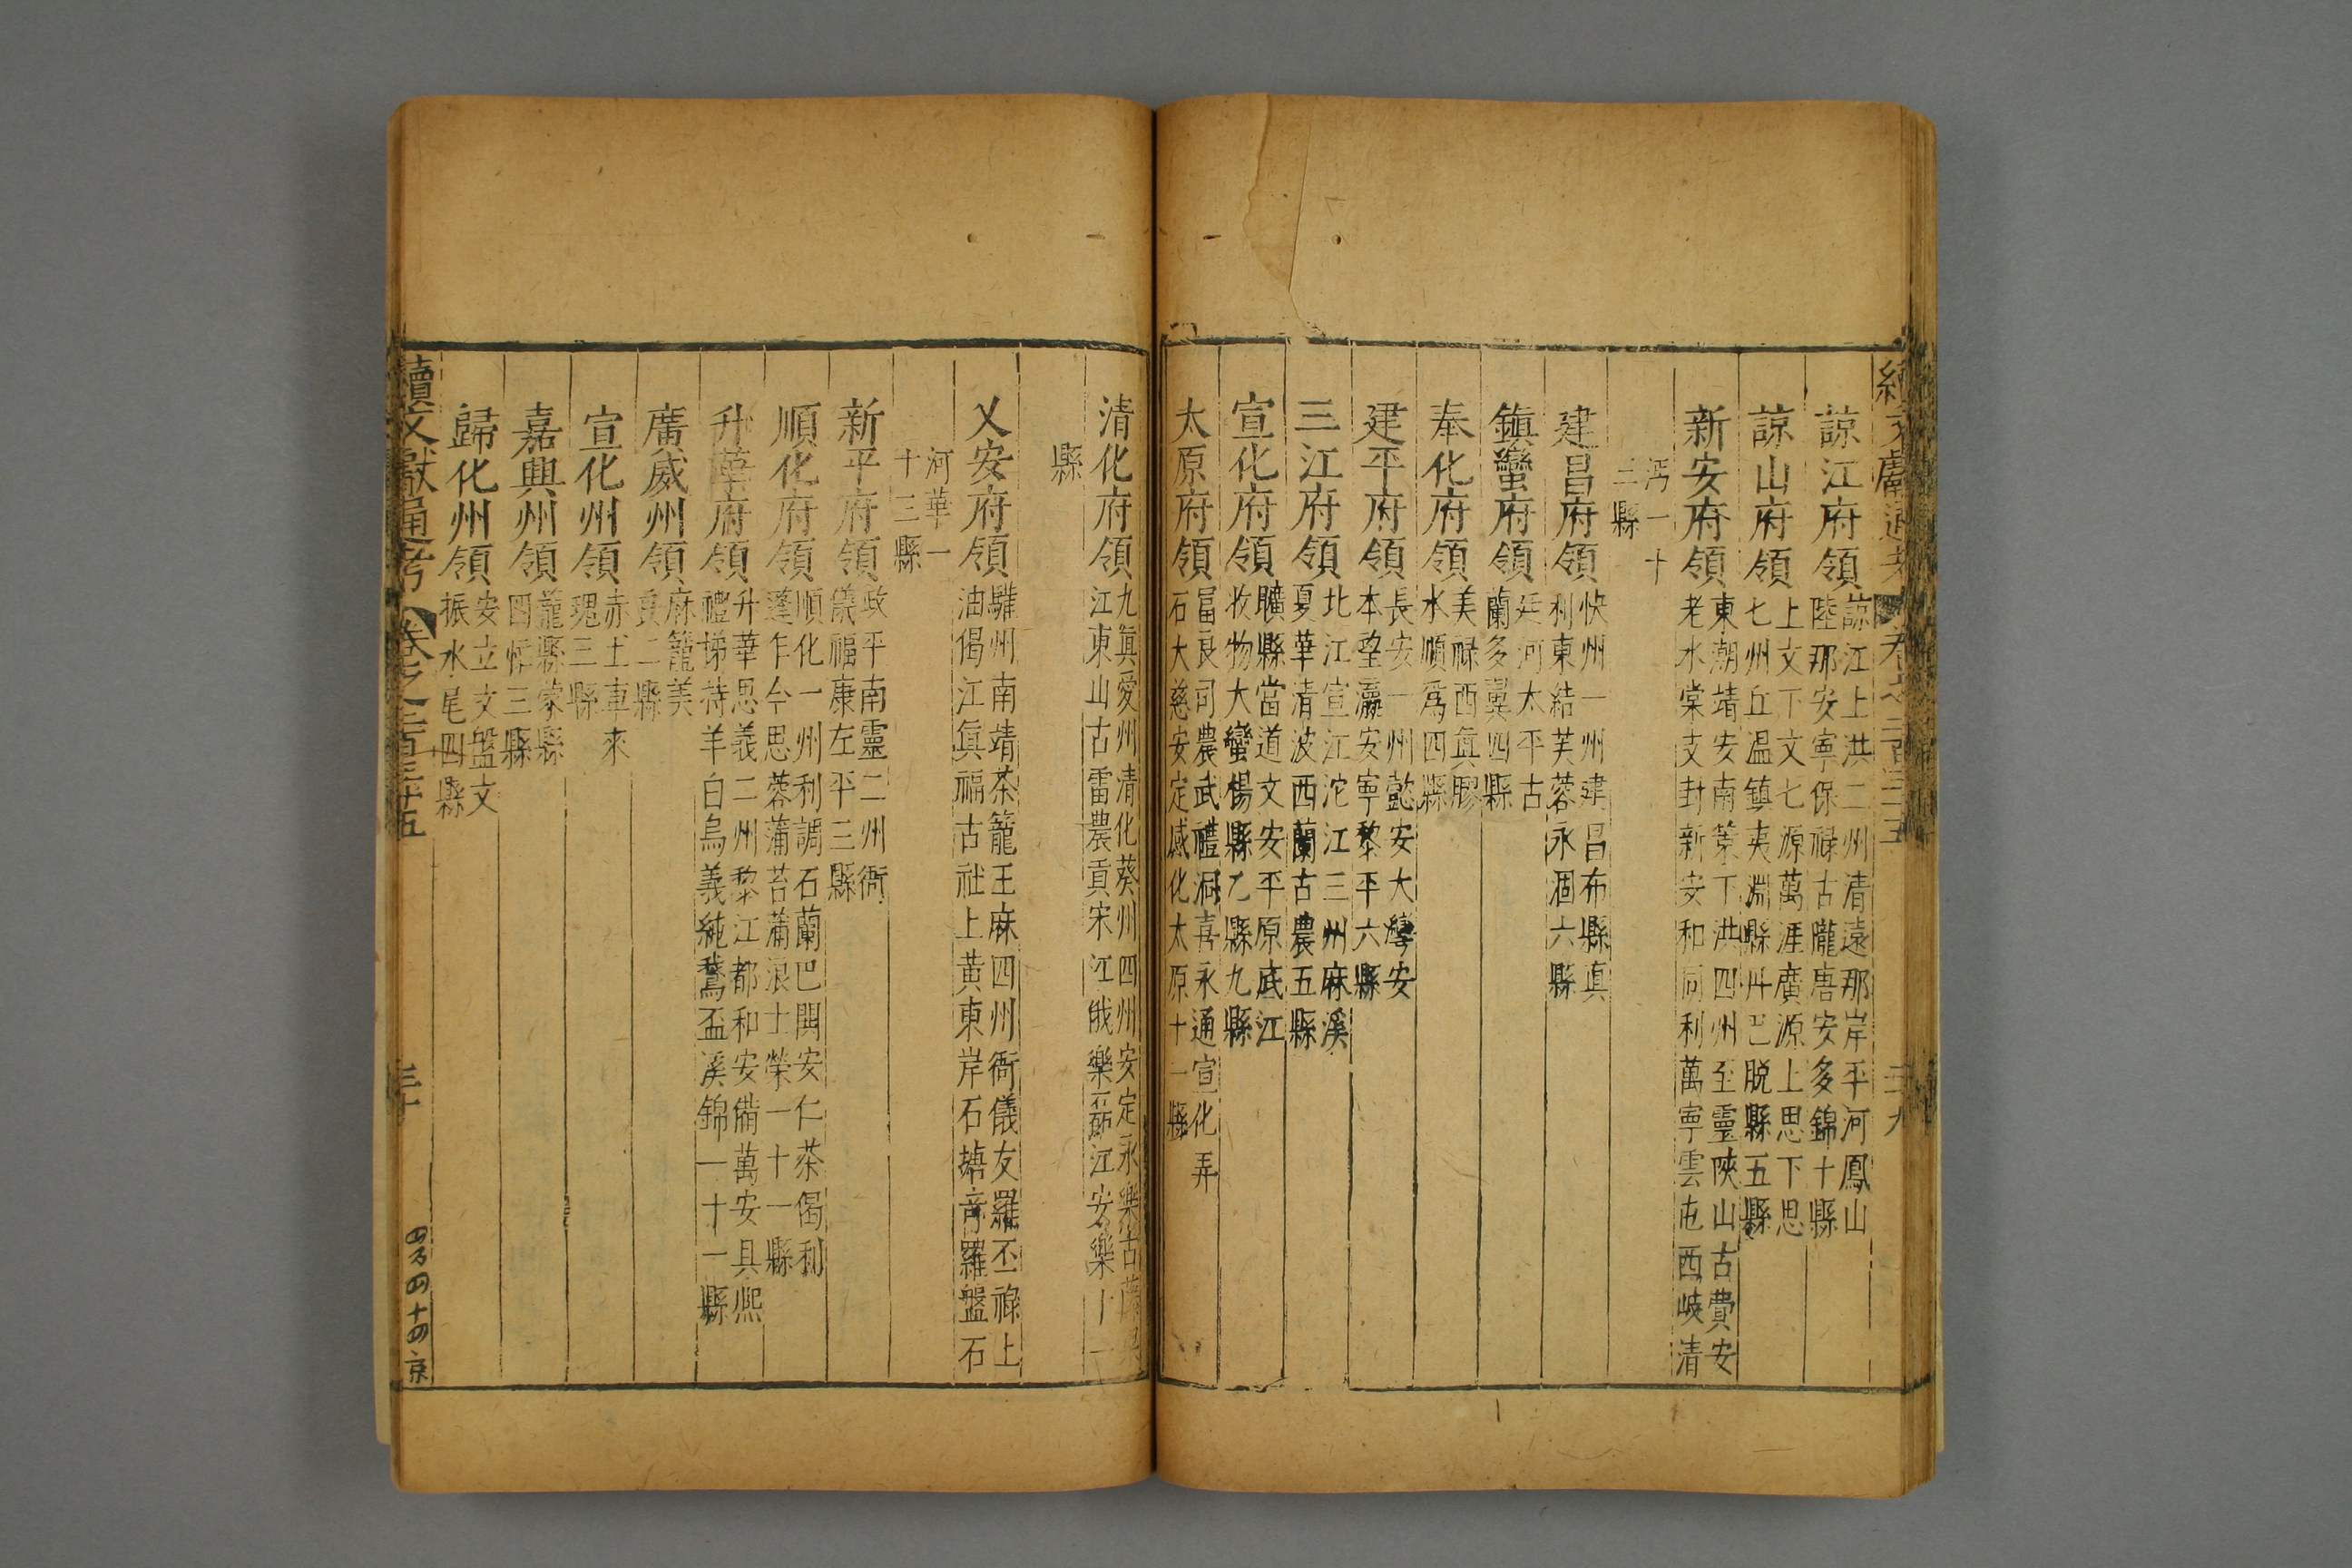 諒江府領諒江上洪二州清遠那岸平河鳳山
陸那安寧保祿古隴唐安多錦十縣
諒山府領上文下文七源萬涯廣源上思下思
七州丘温鎮夷淵縣丹巴脱縣五縣
新安府領東潮靖安南策下洪四州至靈陜山古費安
老水棠支封新安和同利萬寧雲屯西岐清
沔一十
三縣
建昌府領快州一州建昌布縣真
利東結芙蓉永涸六縣
鎮蠻府領廷河太平古
蘭多翼四縣
奉化府領美祿西真膠
水順爲四縣
建平府領長安一州懿安大灣安
本望瀛安寧黎平六縣
三江府領北江宣江沱江三州麻溪
夏華清波西蘭古農五縣
宣化府領曠縣當道文安平原底江
收物大蠻楊縣乙縣九縣
太原府領冨良司農武禮洞喜永通宣化弄
石大慈安定感化太原十一縣
清化府領九眞愛州清化葵州四州安定永樂古藤
江東山古雷農貢宋江俄樂磊江安樂十一
縣
乂安府領驩州南靖茶籠王麻四州衙儀友羅丕祿上
油偈江眞福古社上黄東岸石𡎴竒羅盤石
河華一
十三縣
新平府領政平南靈二州衙
儀福康左平三縣
順化府領順化一州利調石蘭巴閬安仁茶偈利
蓬乍令思蓉蒲苔蒲浪士榮一十一縣
升華府領升華思義二州黎江都和安備萬安具熙
禮悌持羊白烏義純鵞盃溪錦一十一縣
廣威州領麻籠美
良二縣
宣化州領赤土車來
瑰三縣
嘉興州領籠縣蒙縣
四忙三縣
歸化州領安立文盤文
振水尾四縣
續文獻通考 卷之二百三十五 三十